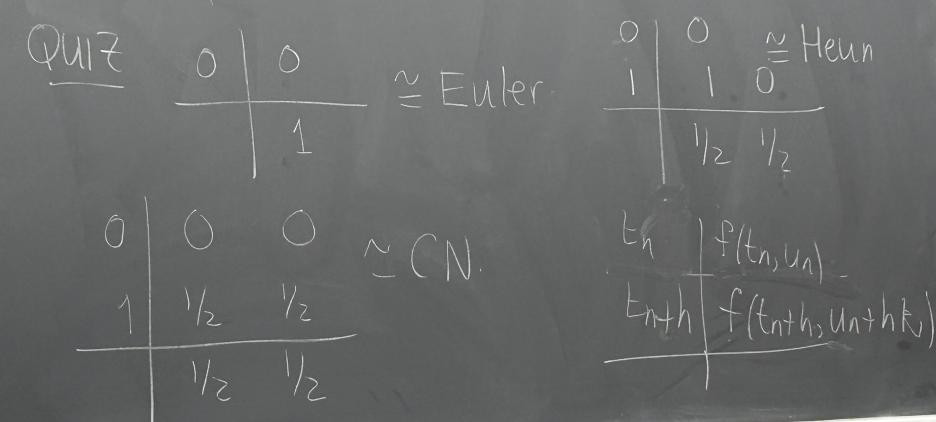 QUIZ
0 | 0
| 1
≅ Euler.
0 | 0
1 | 1 0
| 1/2 1/2
≅ Heun
0 | 0 0
1 | 1/2 1/2
| 1/2 1/2
≃ CN.
tn | f(tn, un)
tn+h | f(tn+h, un+hk,)